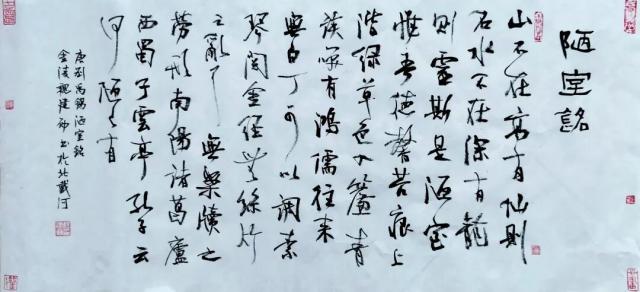 陋室銘
山不在高有仙則
名水不在深有龍
則靈斯是陋室
惟吾德馨苔痕上
階綠草色入簾青
談笑有鴻儒往來
無白丁可以調素
琴閱金經無絲竹
之亂耳無案牘之
勞形南陽諸葛廬
西蜀子雲亭孔子云
何陋之有
唐刘禹锡陋室銘
金陵 书於北戴河